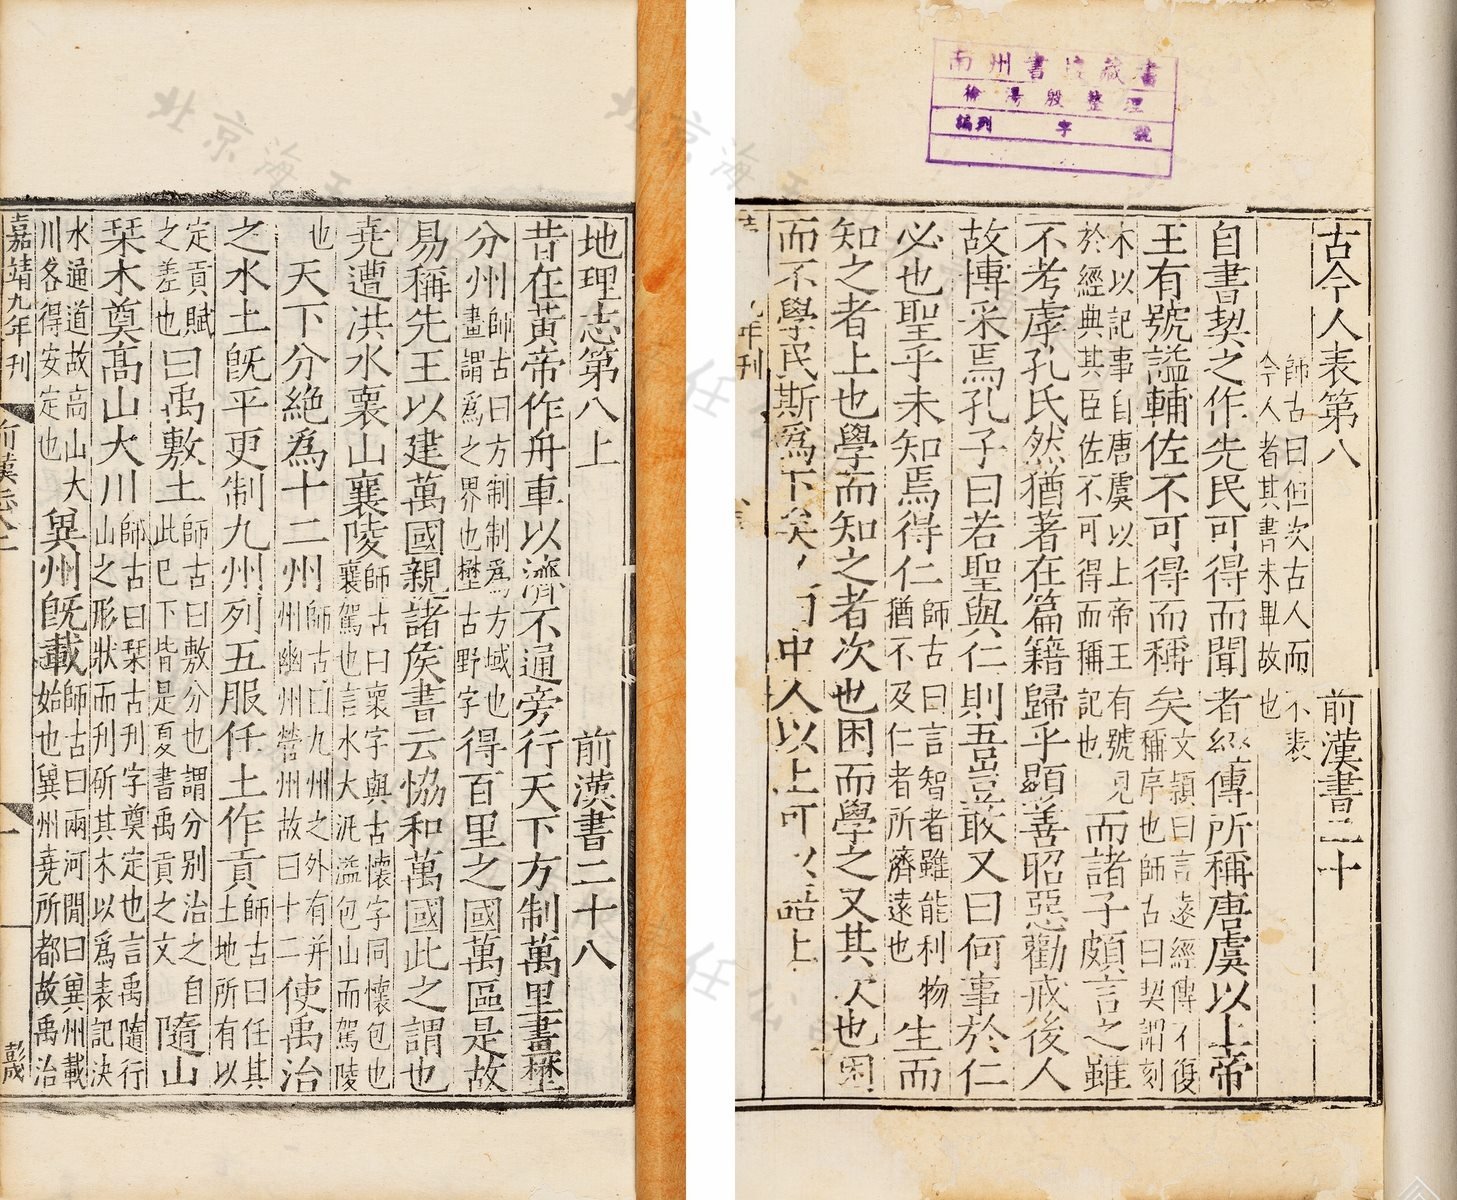 南州書樓藏書
徐湯殷整理
編列 字 號
古今人表第八 前漢書二十
師古曰但次古人而不表
今人者其書未畢故也
自書契之作先民可得而聞者經傳所稱唐虞以上帝
王有號謚輔佐不可得而稱矣文穎曰言遠經傳不復稱序也師古曰契謂刻
木以記事自唐虞以上帝王有號見於經典其臣佐不可得而稱記也而諸子頗言之雖
不考虖孔氏然猶著在篇籍歸乎顯善昭惡勸戒後人
故博采焉孔子曰若聖與仁則吾豈敢又曰何事於仁
必也聖乎未知焉得仁師古曰言智者雖能利物猶不及仁者所濟遠也生而
知之者上也學而知之者次也困而學之又其次也困
而不學民斯爲下矣曰中人以上可以語上
年刊
地理志第八上 前漢書二十八
昔在黃帝作舟車以濟不通旁行天下方制萬里畫壄
分州師古曰方制制爲方域也畫謂爲之界也壄古野字得百里之國萬區是故
易稱先王以建萬國親諸矦書云恊和萬國此之謂也
堯遭洪水褱山襄陵師古曰褱字與古懷字同懷包也襄駕也言水大汎溢包山而駕陵
也天下分絶爲十二州師古曰九州之外有并州幽州營州故曰十二使禹治
之水土旣平更制九州列五服任土作貢師古曰任其土地所有以
定貢賦之差也曰禹敷土師古曰敷分也謂分别治之自此已下皆是夏書禹貢之文隨山
栞木奠高山大川師古曰栞古刊字奠定也言禹隨行山之形狀而刊斫其木以爲表記決
水通道故高山大川各得安定也兾州旣載師古曰兩河閒曰兾州載始也兾州堯所都故禹治
嘉靖九年刊 前漢志八上 一 彭晟